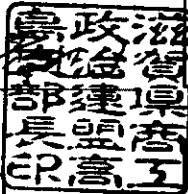 滋賀県商工
政治連盟高
島支部長印